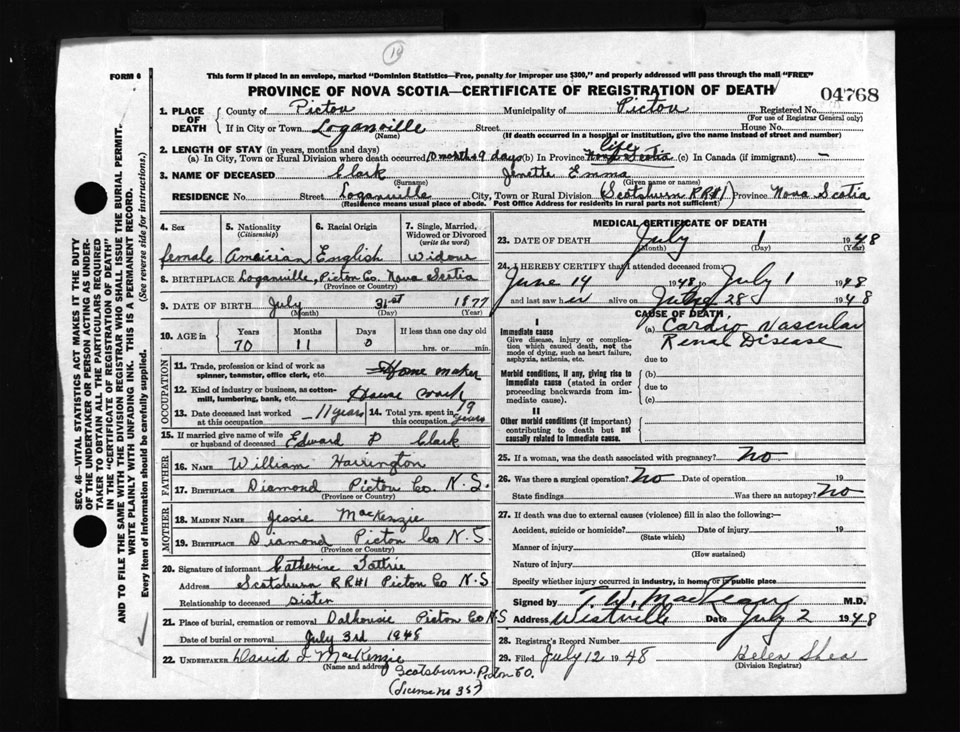 19
FORM 6
This form if placed in an envelope, marked "Dominion Statistics—Free, penalty for improper use $300," and properly addressed will pass through the mail "FREE"
PROVINCE OF NOVA SCOTIA—CERTIFICATE OF REGISTRATION OF DEATH
04768
1. PLACE OF DEATH
County of Pictou Municipality of Pictou Registered No.
(For use of Registrar General only)
If in City or Town Loganville Street House No.
(Name) (If death occurred in a hospital or institution, give the name instead of street and number)
2. LENGTH OF STAY (in years, months and days)
(a) In City, Town or Rural Division where death occurred 10 months 9 days (b) In Province life Nova Scotia (c) In Canada (if immigrant) —
3. NAME OF DECEASED Clark Jenette Emma
(Surname) (Given name or names)
RESIDENCE No. Street Loganville City, Town or Rural Division (Scotsburn RR#1) Province Nova Scotia
(Residence means usual place of abode. Post Office Address for residents in rural parts not sufficient)
4. Sex 5. Nationality (Citizenship) 6. Racial Origin 7. Single, Married, Widowed or Divorced (write the word)
female Amairian English Widow
8. BIRTHPLACE Loganville, Pictou Co. Nova Scotia
(Province or Country)
9. DATE OF BIRTH July 31st 1877
(Month) (Day) (Year)
10. AGE in Years Months Days If less than one day old
70 11 0 hrs. or min.
OCCUPATION
11. Trade, profession or kind of work as spinner, teamster, office clerk, etc. Home maker
12. Kind of industry or business, as cotton-mill, lumbering, bank, etc. House work
13. Date deceased last worked at this occupation 11 years 14. Total yrs. spent in this occupation 19 years
15. If married give name of wife or husband of deceased Edward P Clark
FATHER
16. NAME William Harrington
17. BIRTHPLACE Diamond Pictou Co. N.S.
(Province or Country)
MOTHER
18. MAIDEN NAME Jessie MacKenzie
19. BIRTHPLACE Diamond Pictou Co N.S.
(Province or Country)
20. Signature of informant Catherine Tattrie
Address Scotsburn RR#1 Pictou Co N.S
Relationship to deceased sister
21. Place of burial, cremation or removal Dalhousie Pictou Co N.S
Date of burial or removal July 3rd 1948
22. UNDERTAKER David J MacKenzie
(Name and address) Scotsburn Pictou Co.
(License no 357)
MEDICAL CERTIFICATE OF DEATH
23. DATE OF DEATH July 1 1948
(Month) (Day) (Year)
24. I HEREBY CERTIFY that I attended deceased from
June 19 1948 to July 1 1948
and last saw her alive on June 28 1948
CAUSE OF DEATH
I
Immediate cause
Give disease, injury or complication which caused death, not the mode of dying, such as heart failure, asphyxia, asthenia, etc.
(a) Cardio Vascular
Renal Disease
due to
Morbid conditions, if any, giving rise to immediate cause (stated in order proceeding backwards from immediate cause).
(b)
due to
(c)
II
Other morbid conditions (if important) contributing to death but not causally related to immediate cause.
25. If a woman, was the death associated with pregnancy? No
26. Was there a surgical operation? No Date of operation 19
State findings Was there an autopsy? No
27. If death was due to external causes (violence) fill in also the following:—
Accident, suicide or homicide? Date of injury 19
(State which)
Manner of injury
(How sustained)
Nature of injury
Specify whether injury occurred in industry, in home, or in public place
Signed by M.D.
Address Westville Date July 2 1948
28. Registrar's Record Number
29. Filed July 12 1948 Helen Shea
(Division Registrar)
SEC. 46—VITAL STATISTICS ACT MAKES IT THE DUTY
OF THE UNDERTAKER OR PERSON ACTING AS UNDER-
TAKER TO OBTAIN ALL THE PARTICULARS REQUIRED
IN THE "CERTIFICATE OF REGISTRATION OF DEATH"
AND TO FILE THE SAME WITH THE DIVISION REGISTRAR WHO SHALL ISSUE THE BURIAL PERMIT.
WRITE PLAINLY WITH UNFADING INK. THIS IS A PERMANENT RECORD.
Every item of information should be carefully supplied. (See reverse side for instructions.)